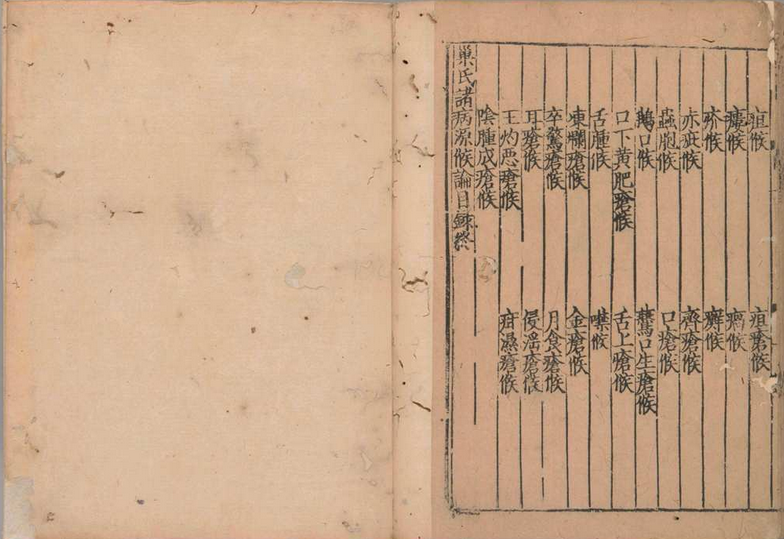 疽候　疽瘡候
瘻候　瘑候
疥候　癬候
赤疵候　臍瘡候
蟲胞候　口瘡候
鵝口候　鷰口生瘡候
口下黃肥瘡候　舌上瘡候
舌腫候　噤候
凍爛瘡候　金瘡候
卒驚瘡候　月食瘡候
耳瘡候　侵淫瘡候
王灼悪瘡候　疳濕瘡候
陰腫成瘡候
巢氏諸病源候論目錄終